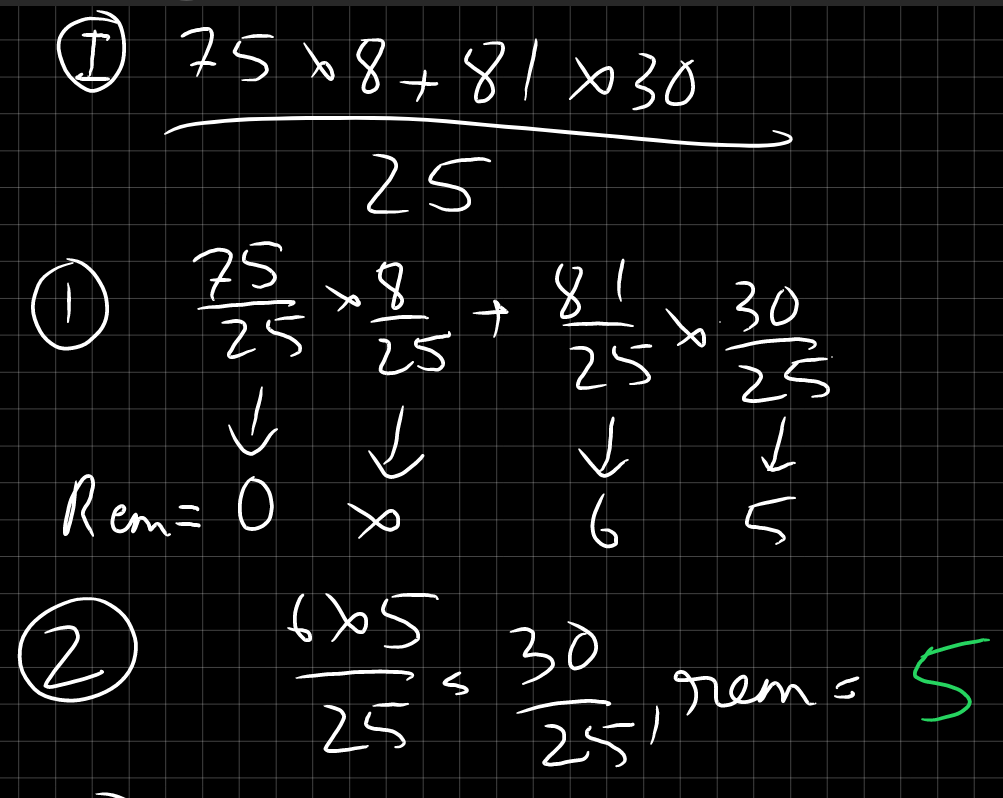 I 75 × 8 + 81 × 30
25
1 75/25 × 8/25 + 81/25 × 30/25
↓ ↓ ↓ ↓
Rem = 0 × 6 5
2 6×5/25 = 30/25, rem = 5